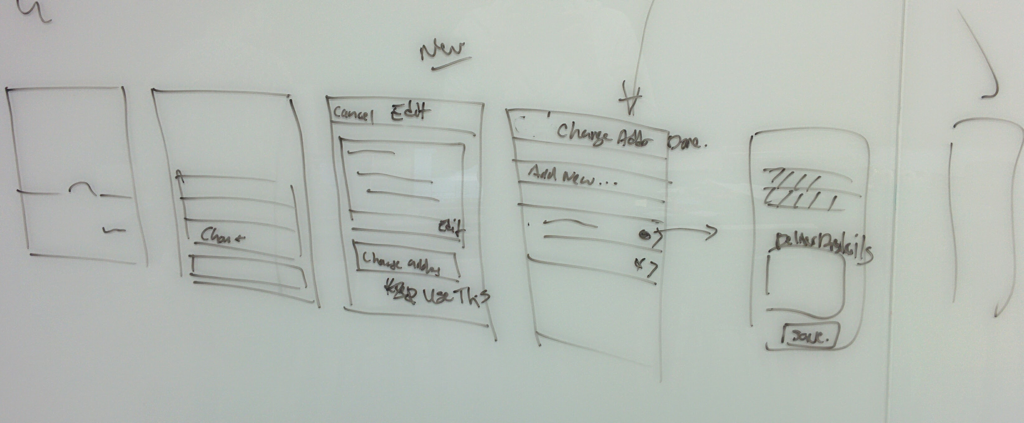 New
Cancel Edit
Edit
Change address
Use This
Change Addr Done.
Add New...
Details
Save.